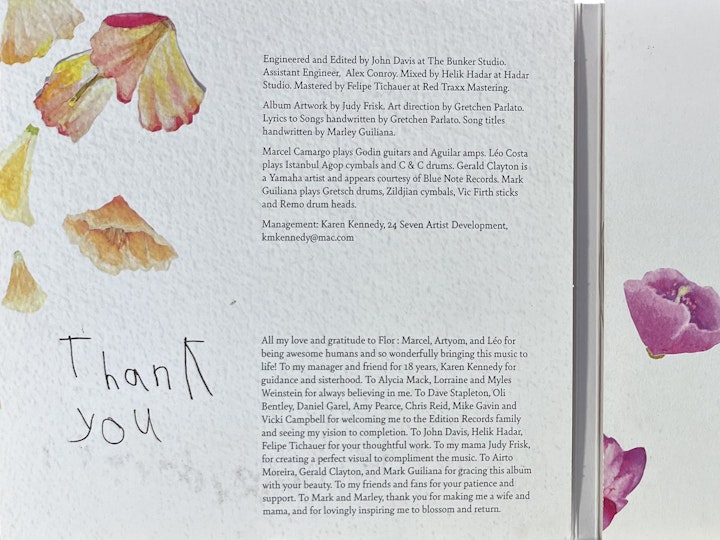 Engineered and Edited by John Davis at The Bunker Studio.
Assistant Engineer, Alex Conroy. Mixed by Helik Hadar at Hadar
Studio. Mastered by Felipe Tichauer at Red Traxx Mastering.
Album Artwork by Judy Frisk. Art direction by Gretchen Parlato.
Lyrics to Songs handwritten by Gretchen Parlato. Song titles
handwritten by Marley Guiliana.
Marcel Camargo plays Godin guitars and Aguilar amps. Léo Costa
plays Istanbul Agop cymbals and C & C drums. Gerald Clayton is
a Yamaha artist and appears courtesy of Blue Note Records. Mark
Guiliana plays Gretsch drums, Zildjian cymbals, Vic Firth sticks
and Remo drum heads.
Management: Karen Kennedy, 24 Seven Artist Development,
kmkennedy@mac.com
Thank
you
All my love and gratitude to Flor : Marcel, Artyom, and Léo for
being awesome humans and so wonderfully bringing this music to
life! To my manager and friend for 18 years, Karen Kennedy for
guidance and sisterhood. To Alycia Mack, Lorraine and Myles
Weinstein for always believing in me. To Dave Stapleton, Oli
Bentley, Daniel Garel, Amy Pearce, Chris Reid, Mike Gavin and
Vicki Campbell for welcoming me to the Edition Records family
and seeing my vision to completion. To John Davis, Helik Hadar,
Felipe Tichauer for your thoughtful work. To my mama Judy Frisk,
for creating a perfect visual to compliment the music. To Airto
Moreira, Gerald Clayton, and Mark Guiliana for gracing this album
with your beauty. To my friends and fans for your patience and
support. To Mark and Marley, thank you for making me a wife and
mama, and for lovingly inspiring me to blossom and return.